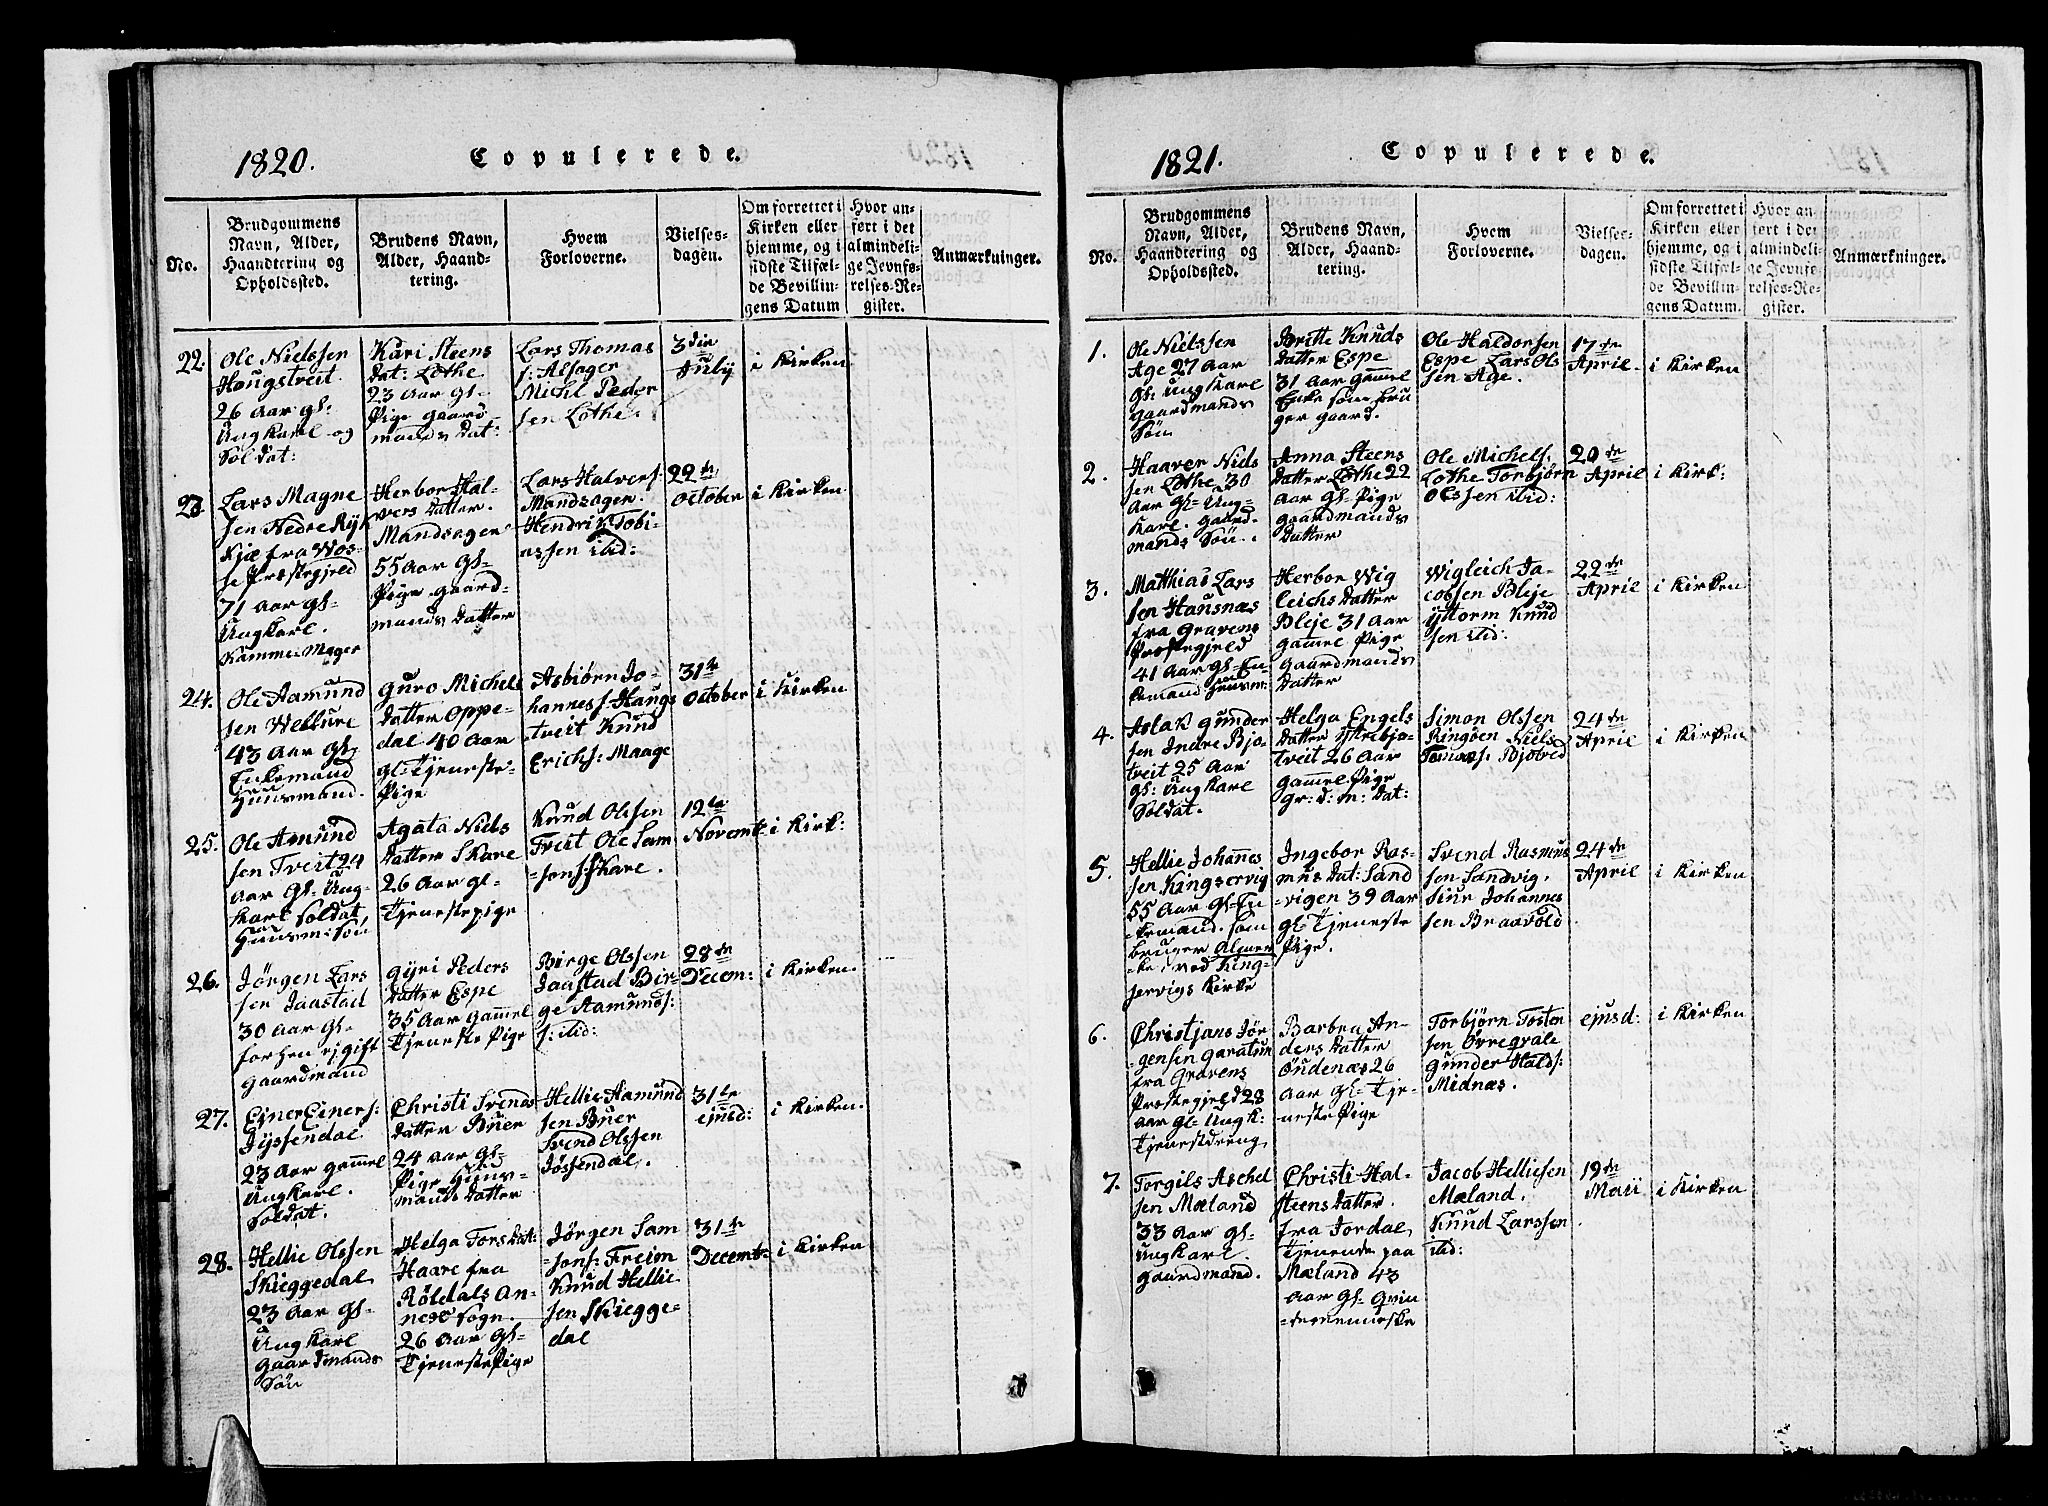 1820.
Copulerede.
No.
Brudgommens
Navn, Alder,
Haandtering og
Opholdssted.
Brudens Navn,
Alder, Haand-
tering.
Hvem
Forloverne.
Vielses-
dagen.
Om forrettet i
Kirken eller
hjemme, og i
sidste Tilfæl-
de Bevillin-
gens Datum
Hvor an-
ført i det
almindeli-
ge Jevnfø-
relses-Re-
gister.
Anmærkninger.
22.
Ole Nielssen
Haugstveit
26 Aar gl:
Ung Karl og
Soldat:
Kari Steens
Dat: Lothe
23 Aar Gl-
Pige gaard
mands Dat:
Lars Thomas
s: Alsager
Michl Peder
sen Lothe
3die
July
i Kirken
23.
Lars Magne
sen Nedre Ryk
Kjæ fra Wos-
se Præstegjeld
71 Aar gl-
Ungkarl.
Kamme-Mager
Herbor Hal-
vers Datter.
Mandsagen
55 Aar Gl-
Pige gaard-
mands Datter
Lars Halvers:
Mandsagen.
Hendrik Tobi-
assen ibid:
22de
October
i Kirken
24.
Ole Aamund
sen Wellure
43 Aar Gl-
Enkemand
Huusmand.
Guro Michels
Datter Oppe-
dal 40 Aar
gl-Tjeneste-
Pige
Asbiørn Jo-
hannes s: Haugs
tveit Knud
Erichs: Maage
31te
October
i Kirken
25.
Ole Amund
sen Tveit 24
Aar Gl-Ung-
Karl Soldat,
Huusm: Søn
Agata Niels
Datter Skare
26 Aar gl-
Tjenestepige
Knud Olssen
Tveit Ole Sam
-sons: Skare.
12te
Novemb:
i Kirk:
26.
Jørgen Lars
sen Jaastad
30 Aar Gl-
forhen ejgift
gaardmand
Gyri Peders
Datter Espe
35 Aar Gammel
Tjeneste Pige
Birge Olssen
Jaastad Bir-
ge Aamunds:
s: ibid:
28de
Decem:
i Kirken.
27.
Ejner Einers:
Jyssendal
23 Aar gammel
Ungkarl.
Soldat.
Christi Svends
Datter Buer
24 Aar Gl-
Pige Huus-
mands Datter
Hellie Aamund
sen Buer
Svend Olssen
Jøssendal.
31te
ejusd:
i Kirken.
28.
Hellie Olssen
Skieggedal
23 Aar Gl-
Ung Karl
Gaardmands
Søn
Helga Tors Dat:
Haare fra
Røldals An-
nex Sogn.
26 Aar Gl-
Tjeneste Pige
Jørgen Sam
-sons: Freim
Knud Hellie
sen Skiegge-
dal
31te
Decemb:
i Kirken
1821.
Copulerede.
No.
Brudgommens
Navn, Alder,
Haandtering og
Opholdssted.
Brudens Navn,
Alder, Haand-
tering.
Hvem
Forloverne.
Vielses-
dagen.
Om forrettet i
Kirken eller
hjemme, og i
sidste Tilfæl-
de Bevillin-
gens Datum.
Hvor an-
ført i det
almindeli-
ge Jevnfø-
relses-Re-
gister.
Anmærkninger.
1.
Ole Nielssen
Age 27 Aar
Gl: Ung Karl
gaardmands
Søn
Britte Knuds
Datter Espe
31 Aar gammel
Enke som bru
ger gaard.
Ole Haldorsen
Espe Lars Ols
sen Age.
17de
April.
i Kirken
2.
Haaver Niels
sen Lothe 30
Aar Gl-Ung-
Karl. Gaard-
mands Søn.
Anna Steens
Datter Lothe 22
Aar Gl-Pige
gaardmands
Datter
Ole Michels.
Lothe Torbjørn
Olssen ibid:
20de
April
i Kirk:
3.
Matthias Lars
sen Hausnæs
fra Gravens
Præstegjeld
41 Aar Gl-En-
kemand Huusm:
Herbor Wig
leichs Datter
Bleje 31 Aar
gammel Pige
Gaardmands
Datter
Wigleich Ja-
cobsen Bleje
Gttorm Knud
sen ibid:
22de
April
i Kirken
4.
Aslak Gunder
sen Indre Bjo-
tveit 25 Aar
Gl: Ung Karl
Soldat.
Helga Engels
Datter Ytrebjo-
tveit 26 Aar
Gammel Pige
Gr: d: m: Dat:
Simon Olssen
Ringøen Niels
Tomæs: Bjotved
24de
April
i Kirken
5.
Hellie Johannes
sen Kingservig
55 Aar Gl-En
-kemand. som
bruger Almer
ke, ved King-
servigs Kirke
Ingebor Ras-
mus Dat: Sand
-vigen 39 Aar
gl-Tjeneste
Pige.
Svend Rasmus
sen Sandvig.
Siur Johannes
sen Braavold
24de
April
i Kirken
6.
Christjans Jør
-gensen Garatun
fra Gravens
Præstegjeld 28
Aar gl-Ungk:
Tjenestdreng
Barbra An-
ders Datter
Øndenæs 26
Aar Gl-Tje-
neste Pige
Torbjørn Tosten
sen Øvregrale
Gunder Halds:
Midnæs.
ejusd:
i Kirken
7.
Torgils Aschel
sen Mæland
33 Aar Gl-
Ungkarl.
Gaardmand.
Christi Hal-
steens Datter.
fra Jordal,
Tjenende paa
Mæland 43
Aar Gl-Qvin
-demenneske
Jacob Helliesen
Mæland.
Knud Larssen
ibid:
19de
Maii
i Kirken